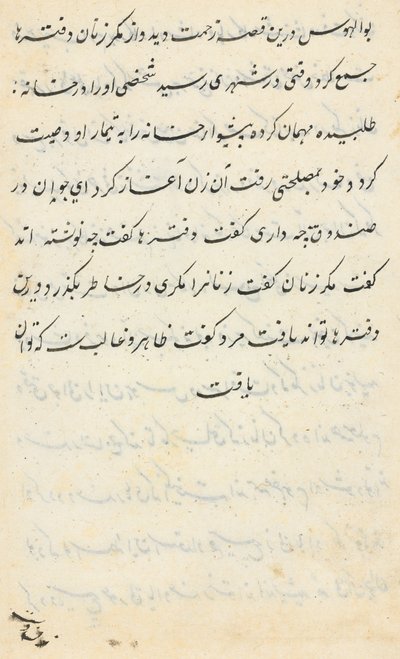 بوالهوس درین قصه زحمت دید و از مکر زنان دفترها
جمع کرد وقتی در شهری رسید شخصی او را در خانه
طلبیده مهمان کرده پیشوا خانه را به تیمار او وصیت
کرد و خود بمصلحتی رفت آن زن آغاز کرد ای جوان در
صندوق چه داری گفت دفترها گفت چه نوشته اند
گفت مکر زنان گفت زنانرا مکری در خاطر بگذرد درین
دفترها تواند یافت مرد گفت ظاهر و غالبست که توان
یافت